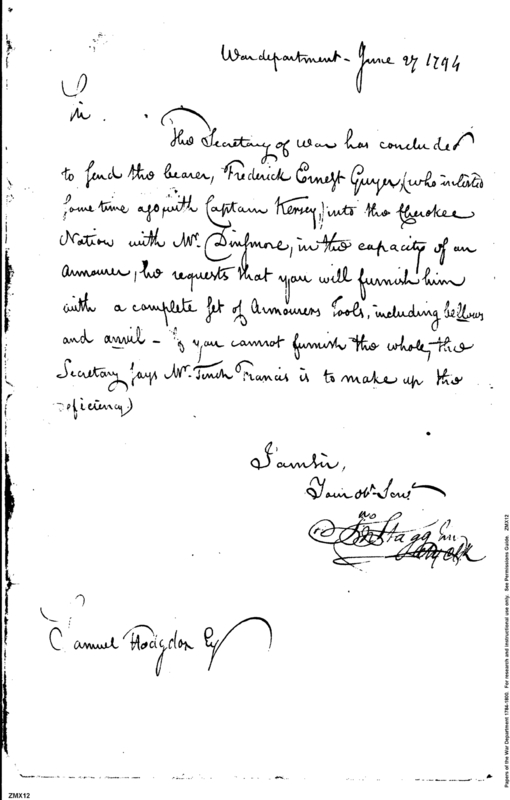 War department - June 27 1794
Sir.
The Secretary of War has concluded
to send the bearer, Frederick Ernest Guyer, (who inlisted
some time ago with Captain Kersey,) into the Cherokee
Nation with Mr. Dinsmore, in the capacity of an
Armourer, he requests that you will furnish him
with a complete set of Armourers Tools, including bellows
and anvil - If you cannot furnish the whole, the
Secretary says Mr. Tench Francis is to make up the
deficiency)
I am Sir,
Your obt. Servt
Jno Stagg Junr
Clk
Samuel Hodgdon Esq
Papers of the War Department 1784-1800. For research and instructional use only. See Permissions Guide. ZMX12
ZMX12